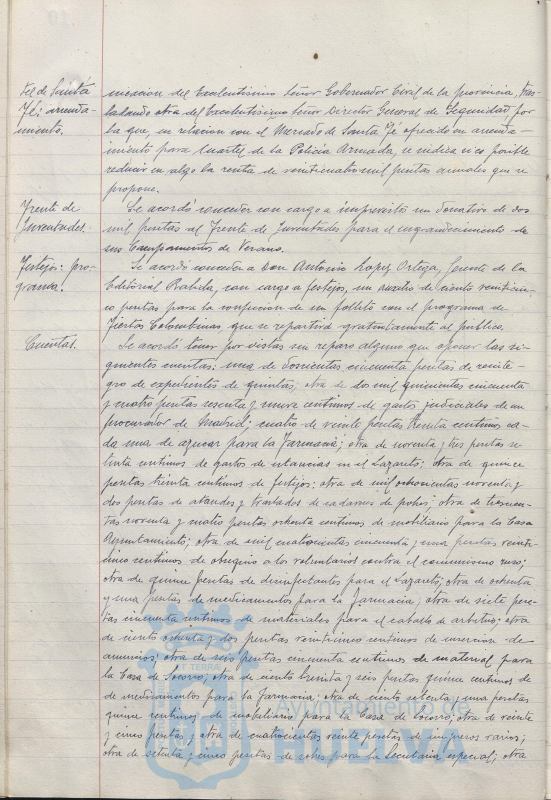 Fé; arrenda-
miento.
nicacion del Excelentisimo Señor Gobernador Civil de la provincia, tras-
ladando otra del Excelentisimo Señor Director General de Seguridad por
la que, en relacion con el Mercado de Santa Fé ofrecido en arrenda-
miento para Cuartel de la Policia Armada, se indica si es posible
reducir en algo la renta de veinticuatro mil pesetas anuales que se
propone.
Frente de
Juventudes.
Se acordó conceder con cargo a imprevistos un donativo de dos
mil pesetas al Frente de Juventudes para el engrandecimiento de
sus Campamentos de Verano.
Festejos: pro-
grama.
Se acordó conceder a Don Antonio Lopez Ortega, Gerente de la
Editorial Rabida, con cargo a festejos, un auxilio de ciento veinticin-
co pesetas para la confeccion de un folleto con el programa de
Fiestas Colombinas que se repartirá gratuitamente al público.
Cuentas.
Se acordó tener por vistas sin reparo alguno que oponer las si-
guientes cuentas: una de doscientas cincuenta pesetas de reinte-
gro de expedientes de quintas; otra de dos mil quinientas cincuenta
y cuatro pesetas sesenta y nueve centimos de gastos judiciales de un
procurador de Madrid; cuatro de veinte pesetas treinta centimos ca-
da una de azucar para la Farmacia; otra de noventa y tres pesetas se-
tenta centimos de gastos de estancias en el Lazareto; otra de quince
pesetas treinta centimos de festejos; otra de mil ochocientas noventa y
dos pesetas de ataudes y traslados de cadaveres de pobres; otra de trescien-
tas noventa y cuatro pesetas ochenta centimos de mobiliario para la Casa
Ayuntamiento; otra de mil cuatrocientas cincuenta y una pesetas veinti-
cinco centimos de obsequio a los voluntarios contra el comunismo ruso;
otra de quince pesetas de desinfectantes para el Lazareto; otra de ochenta
y una pesetas de medicamentos para la Farmacia; otra de siete pese-
tas cincuenta centimos de materiales para el caballo de arbitrios; otra
de ciento ochenta y dos pesetas veinticinco centimos de insercion de
anuncios; otra de seis pesetas cincuenta centimos de material para
la Casa de Socorro; otra de ciento treinta y seis pesetas quince centimos de
de medicamentos para la Farmacia; otra de ciento setenta y una pesetas
quince centimos de mobiliario para la Casa de Socorro; otra de veinte
y cinco pesetas y otra de cuatrocientas veinte pesetas de impresos varios;
otra de setenta y cinco pesetas de sobres para la Secretaria especial; otra
Ayuntamiento de
HUELVA